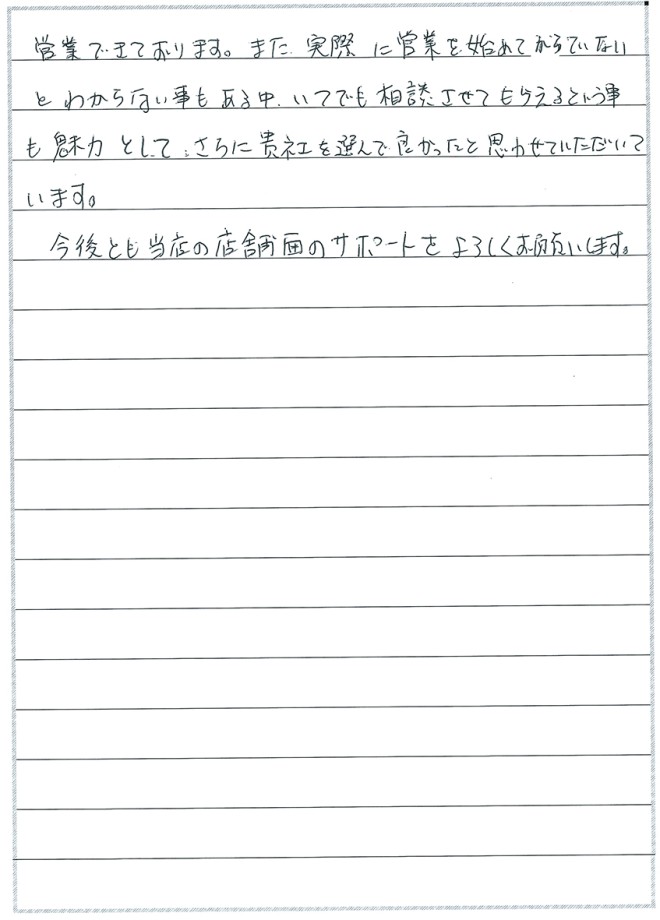 営業できております。また、実際に営業を始めてからでいない
とわからない事もある中、いつでも相談させてもらえるという事
も魅力として、さらに貴社を選んで良かったと思わせていただいて
います。
今後とも当店の店舗面のサポートをよろしくお願いします。